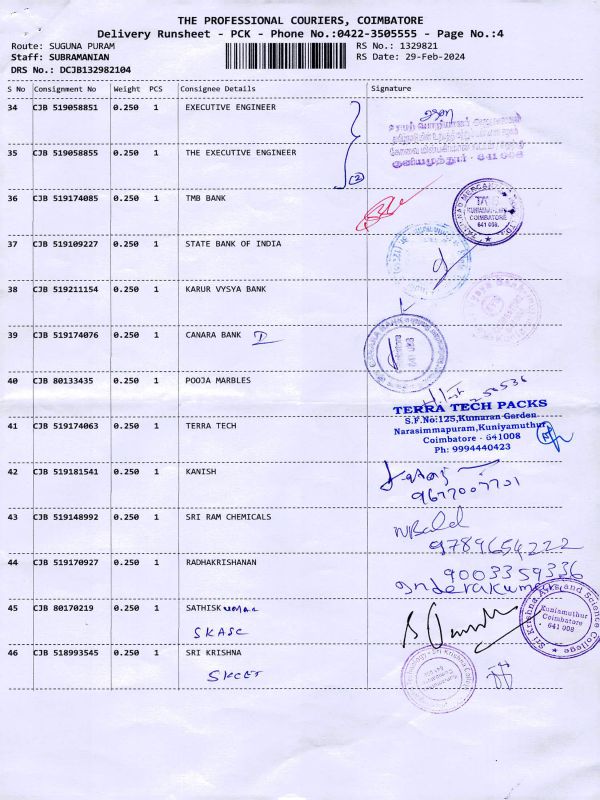 THE PROFESSIONAL COURIERS, COIMBATORE
Delivery Runsheet - PCK - Phone No.:0422-3505555 - Page No.:4
Route: SUGUNA PURAM RS No.: 1329821
Staff: SUBRAMANIAN RS Date: 29-Feb-2024
DRS No.: DCJB132982104
S No Consignment No Weight PCS Consignee Details Signature
34 CJB 519058851 0.250 1 EXECUTIVE ENGINEER
35 CJB 519058855 0.250 1 THE EXECUTIVE ENGINEER
(2)
குனியமுத்தூர் - 641 008
36 CJB 519174085 0.250 1 TMB BANK
KUNIAMUTHUR
COIMBATORE
641 008.
37 CJB 519109227 0.250 1 STATE BANK OF INDIA
38 CJB 519211154 0.250 1 KARUR VYSYA BANK
39 CJB 519174076 0.250 1 CANARA BANK
CANARA BANK
641 008
40 CJB 80133435 0.250 1 POOJA MARBLES
41 CJB 519174063 0.250 1 TERRA TECH
TERRA TECH PACKS
S.F.No:125,Kumaran Garden
Narasimmapuram,Kuniyamuthur
Coimbatore - 641008
Ph: 9994440423
42 CJB 519181541 0.250 1 KANISH
9677007701
43 CJB 519148992 0.250 1 SRI RAM CHEMICALS
9789654222
44 CJB 519170927 0.250 1 RADHAKRISHANAN
9003359336
45 CJB 80170219 0.250 1 SATHISKumar
SKASC
Sri Krishna Arts and Science College
Kuniamuthur
Coimbatore
641 008
46 CJB 518993545 0.250 1 SRI KRISHNA
SKCET